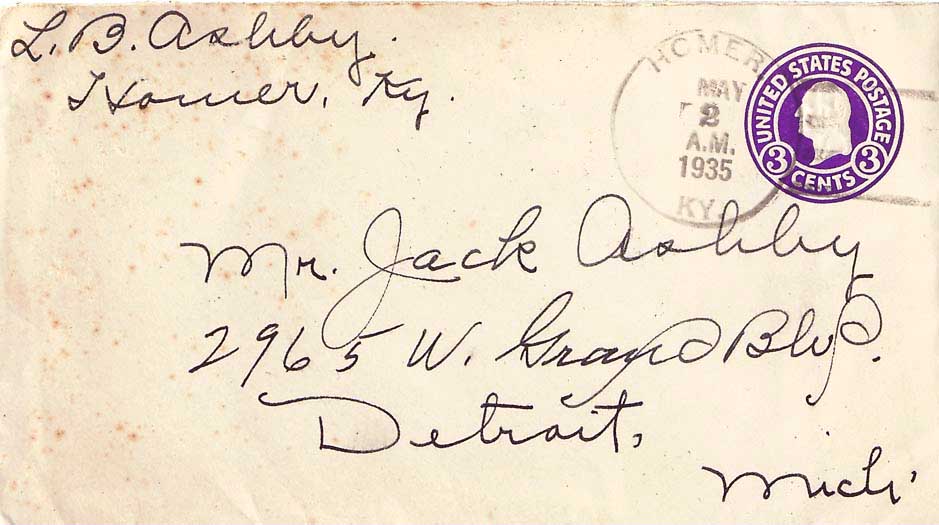 L. B. Ashby.
Homer, Ky.
HOMER
MAY
2
A.M.
1935
KY.
UNITED STATES POSTAGE
3 CENTS 3
Mr. Jack Ashby
2965 W. Grand Blvd.
Detroit,
Mich.